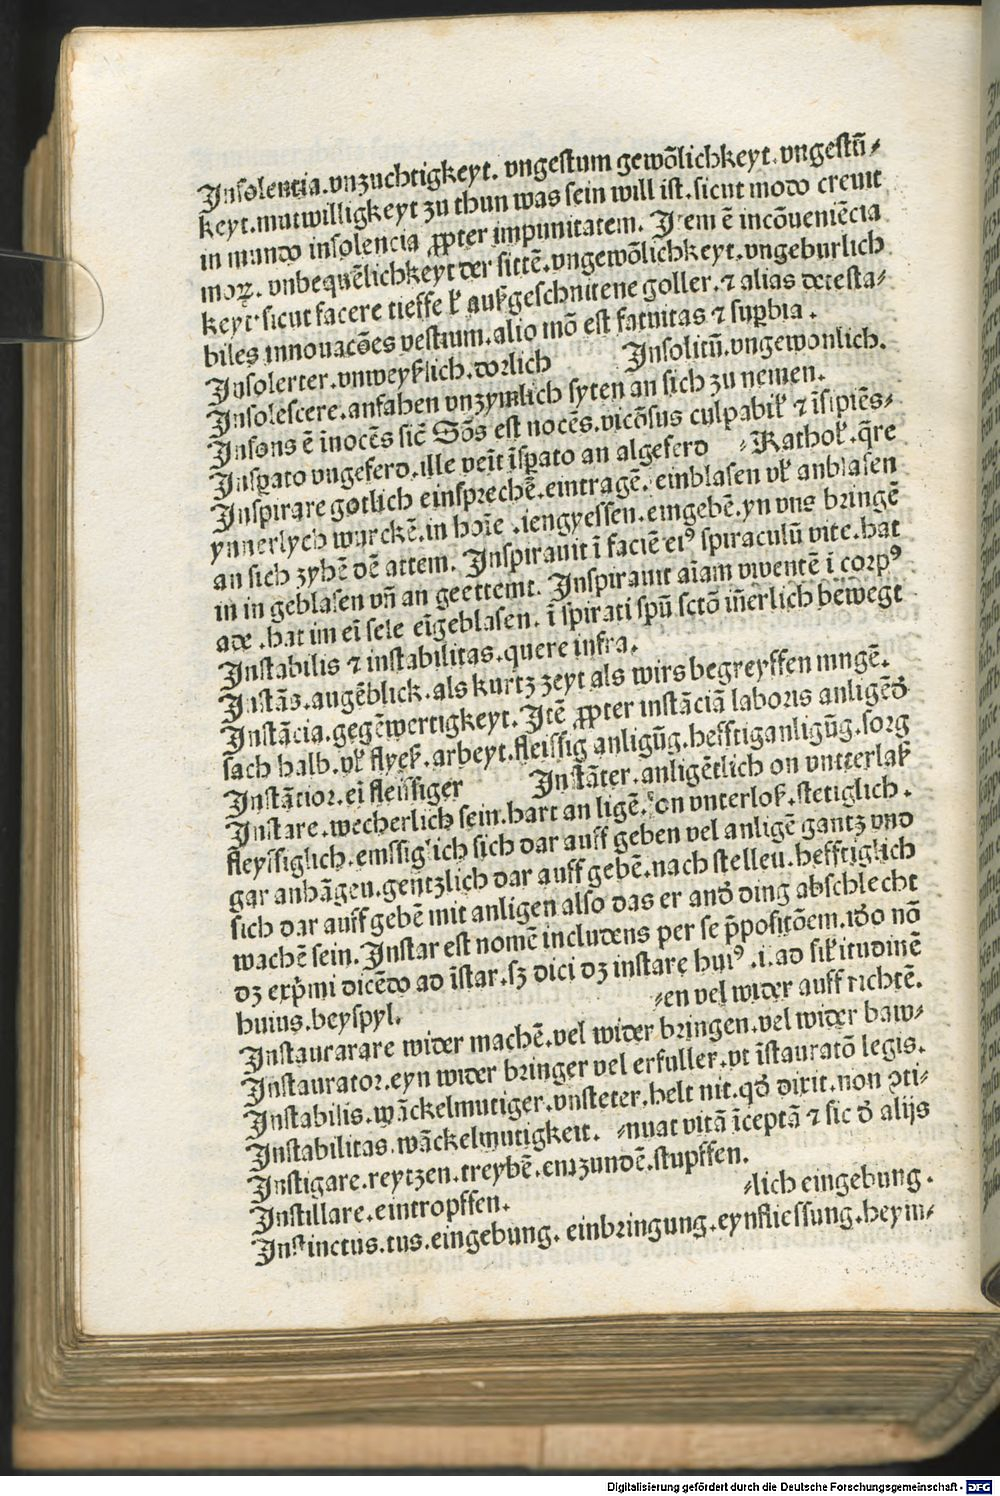 Insolentia.vnzuchtigkeyt. vngestum gewõlichkeyt.vngestũ⸗
keyt.mutwilligkeyt zu thun was sein will ist.sicut modo creuit
in mundo insolencia ꝓpter impunitatem. Item ē incõueniẽcia
moꝝ. vnbequẽlichkeyt der sittẽ.vngewõlichkeyt.vngeburlich
keyt sicut facere tieffe ł außgeschnitene goller.⁊ alias detesta⸗
biles innouacões vestium.alio mõ est fatuitas ⁊ suꝑbia .
Insolerter.vnweyßlich.dorlich Insolitũ.vngewonlich.
Insolescere.anfahen vnzymlich syten an sich zu nemen.
Insons ē inocẽs sic̃ Sõs est nocẽs.vicõsus culpabił ⁊ ĩsipiẽs⸗
Insꝑato vngeferd.ille veĩt ĩsꝑato an algeferd ⸗Kathoł.q̃re
Inspirare gotlich einsprechẽ.eintragẽ. einblasen vł anblasen
ynnerlych wurckẽ.in hoĩe .iengyessen.eingebẽ.yn vns bringẽ
an sich zyhẽ dẽ attem. Inspirauit ĩ faciẽ eiꝰ spiraculũ vite.hat
in in geblasen vñ an geettemt. Inspirauit aĩam viventẽ ĩ corpꝰ
ade .hat im eĩ sele eĩgeblasen. ĩ spirati spũ sctõ iñerlich bewegt
Instabilis ⁊ instabilitas.quere infra.
Instãs.augẽblick.als kurtz zeyt als wirs begreyffen mugẽ.
Instãcia.gegẽwertigkeyt. Itẽ ꝓpter instãciã laboris anligẽđ
sach halb.vł flyeß.arbeyt.fleissig anligũg.hefftiganligũg.sorg
Instãtior.eĩ fleissiger Instãter.anligẽtlich on vntterlaß
Instare.wecherlich sein.hart an ligẽ. on vnterloß.stetiglich .
fleyssiglich.emssiglich sich dar auff geben vel anligẽ gantz vnd
gar anhãgen.gentzlich dar auff gebẽ.nach stellen.hefftiglich
sich dar auff gebẽ mit anligen also das er anđ ding abschlecht
wachẽ sein. Instar est nomẽ includens per se p̃positõem.iđo nõ
dꝫ exp̃mi dicẽdo ad ĩstar.sꝫ dici dꝫ instare huiꝰ .i.ad siłitudinẽ
huius.beyspyl. ⸗en vel wider auff richtẽ.
Instaurarare wider machẽ.vel wider bringen.vel wider baw⸗
Instaurator.eyn wider bringer vel erfuller.vt ĩstauratõ legis.
Instabilis.wãckelmutiger.vnsteter.helt nit.qđ dixit.non ꝯti⸗
Instabilitas.wãckelmutigkeit. ⸗nuat vitã ĩceptã ⁊ sic đ alijs
Instigare.reytzen.treybẽ.enzundẽ.stupffen.
Instillare.eintropffen. ⸗lich eingebung.
Instinctus.tus.eingebung. einbringung.eynfliessung.heym⸗
Digitalisierung gefördert durch die Deutsche Forschungsgemeinschaft - DFG